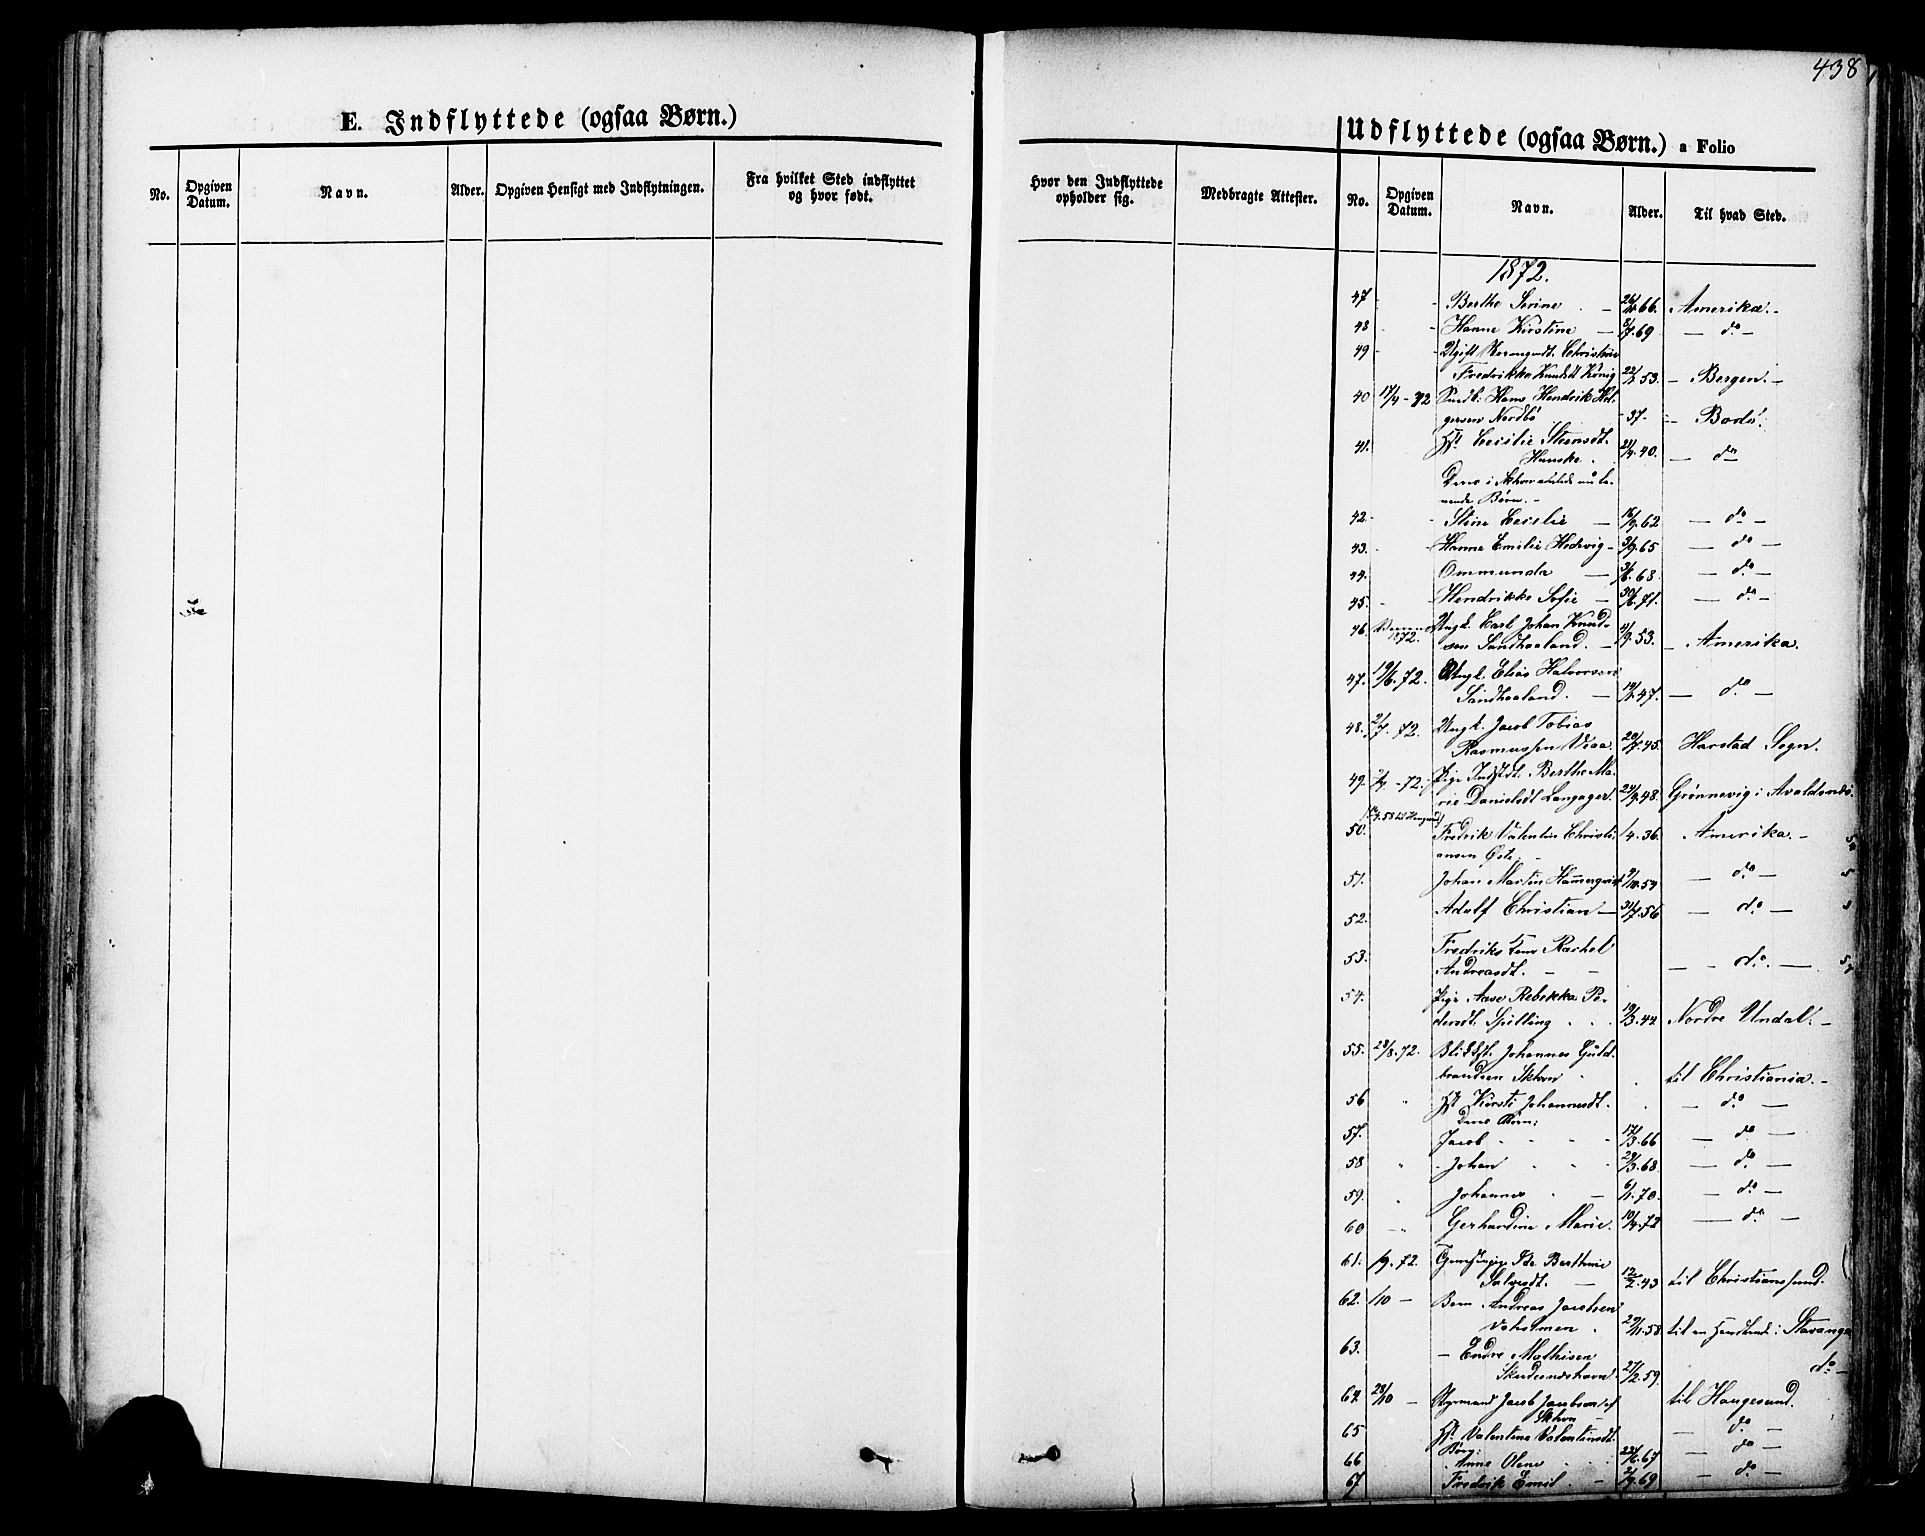 438
E. Indflyttede (ogsaa Børn.)
Udflyttede (ogsaa Børn.) a Folio
No. Opgiven Datum. Navn. Alder. Opgiven Hensigt med Indflytningen. Fra hvilket Sted indflyttet og hvor født.
Hvor den Indflyttede opholder sig. Medbragte Attester. No. Opgiven Datum. Navn. Alder. Til hvad Sted.
1872.
47 - - Berthe Serine - 66. Amerika. -
48 - - Hanne Kirstine - 69 - do -
49 - - Ugift Christine
Fredrikke Knudsdt König 53. - Bergen. -
40 17/4 - 72 Snedk. Hans Hendrik Hel-
gersen Nordbö - 37 - - Bodö.
41. Cecilie Steensdt.
40. - do -
Deres i Skhavn nu le-
vende Børn. -
42. - - Stine Cecilie - 16/9. 62 - do -
43. - - Hanne Emilie Hedevig - 3/9. 65 - do -
44. Ommunda - 68. - do -
45. - - Hendrikke Sofie - 71. - do -
46. 1872. Ungk. Carl Johan Knud-
sen Sandhaaland. - 4/9. 53. - Amerika.
47. 19/6. 72. Ungk. Elias Halvorsen
Sandhaaland. - 47. - do -
48. 2/7. 72. Ungk. Jacob Tobias
Rasmussen Viaa. 45. Harstad Sogn.
49. - 72. Pige Berthe Ma-
rie Danielsdt Langager. 24/9. 48. Grönnevig i Avaldsnæs.
50. Fredrik Valentin Christi-
ansen 4. 36. Amerika. -
51. Johan Martin - do -
52. Adolf Christian - 31/7. 56 - do -
53. Fredriks Rachel
Andreasdt. - - - - do. -
54. Pige Aase Rebekka Pe-
dersdt. Spilling 19/3. 44 Nordre Undal. -
55. 28/8. 72. Johannes Guld-
brandsen Skhavn til Christiania. -
56 " Kirsti Johannesdt. - do -
Deres Børn:
57. Jacob 17/3. 66 - do -
58 " - Johan 29/3. 68. - do -
59. " Johannes - 6/1. 70. - do -
60 - " Gerhardine Marie. 10/4. 72 - do -
61. /9. 72. Ida Berthine
Salvesdt. - 12/2. 43 til Christianssund.
62. /10 - Barn Andreas Jacobsen
Vaholmen 29/11. 58. til en i Stavanger
63. - Endre Mathisen
Skudesneshavn 27/2. 59. do -
64. 28/10 - Styrmand Jacob Jacobsen af
Skhavn - til Haugesund.
65 Valentine Valentinsdt. - do -
Børn:
66 Anne Oline 22/6. 67 - do -
67 Fredrik Emil. - 2/9. 69 - do -